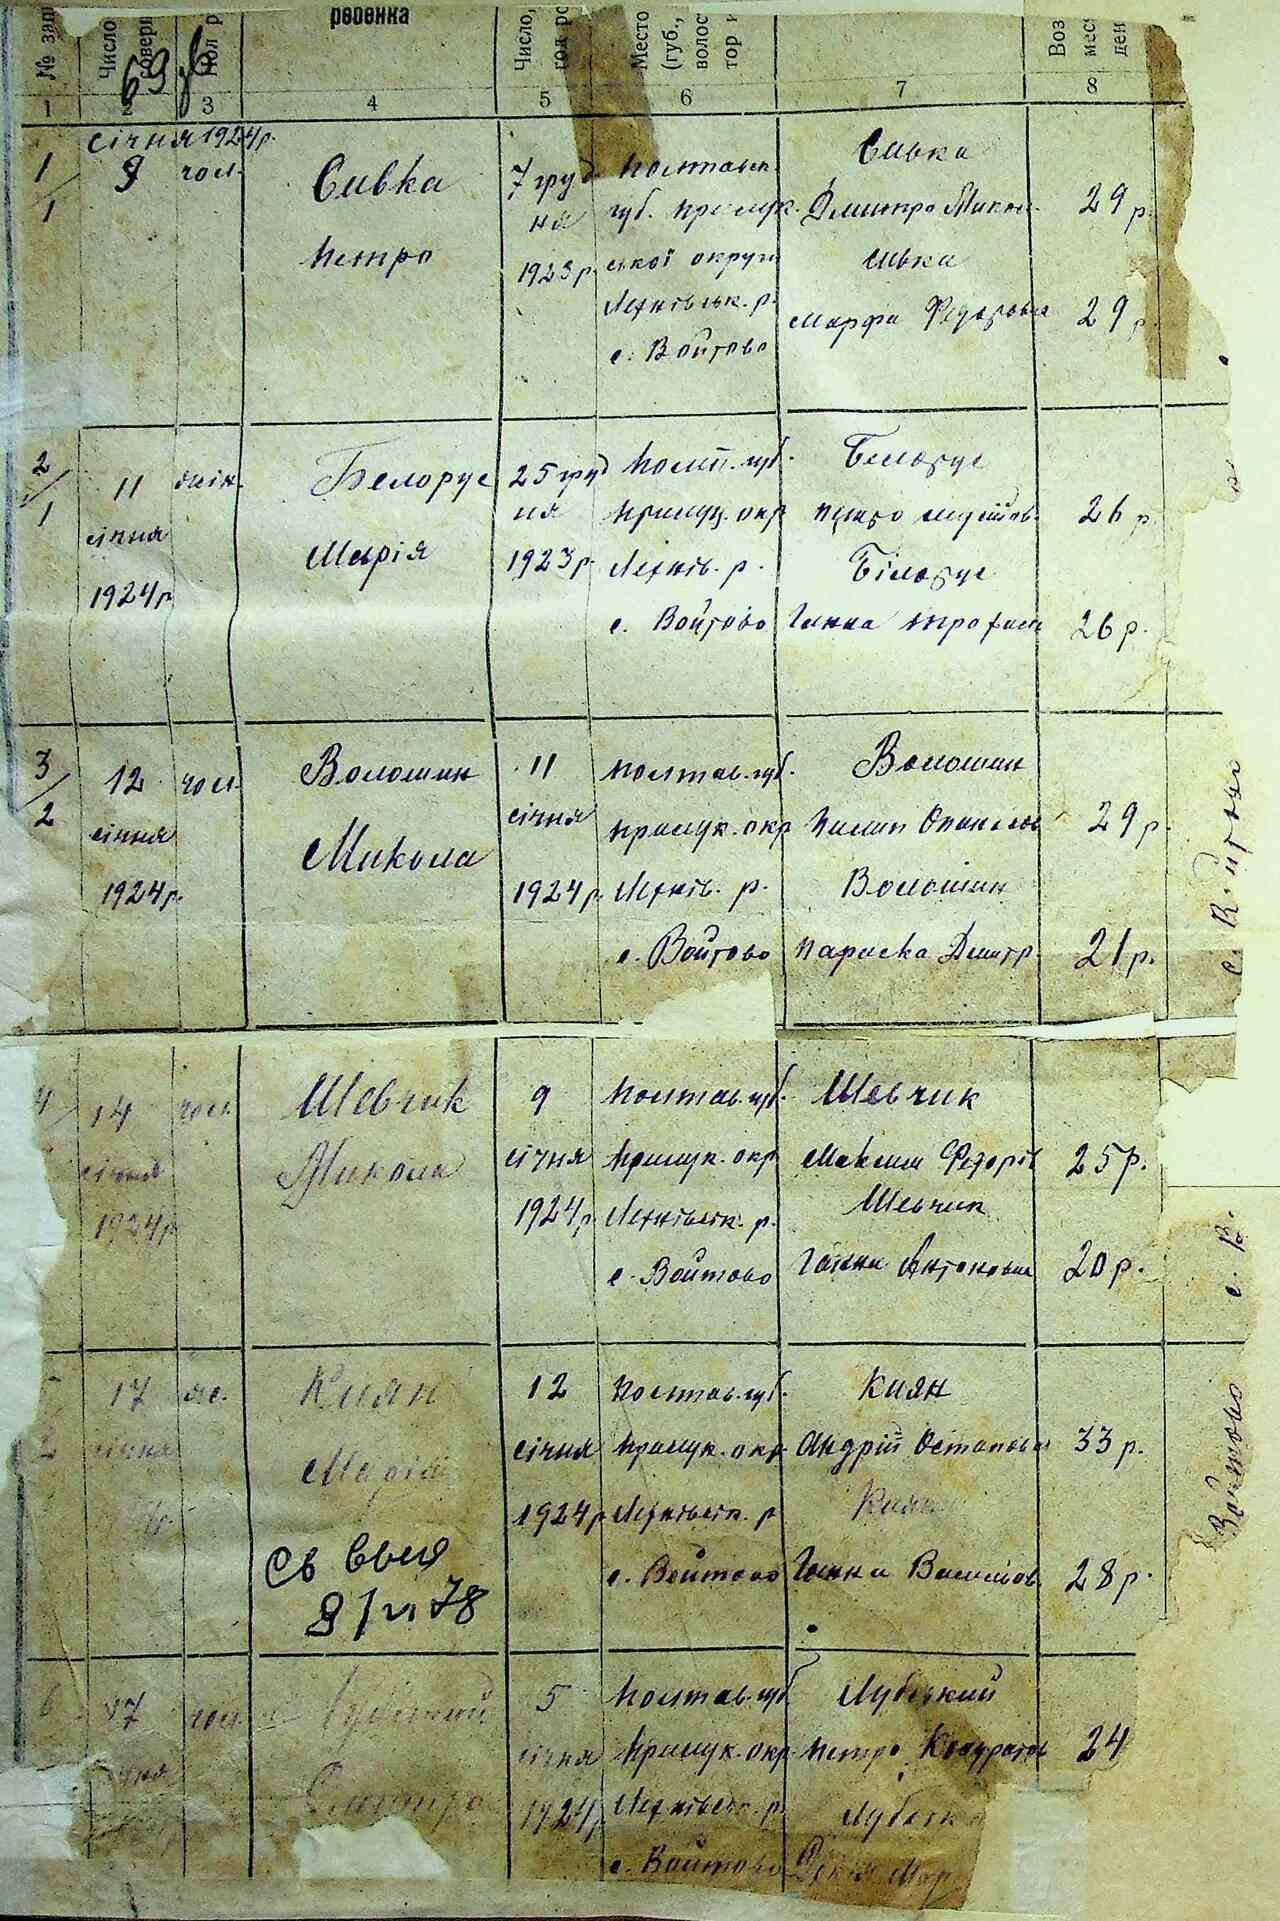 № зап
Число
соверш
Пол р
ребенка
Число,
год ро
Место
(губ.,
волос
тор и
Воз
мест
ден
69
1 2 3 4 5 6 7 8
1/1
січня 1924р.
9
чол.
Сивка
Петро
7 груд
ня
1923р.
Полтавск.
губ. Прилук.
ської округи
Лехнівськ. р.
с. Войтово
Сивка
Дмитро Микол.
Сивка
Марфа Федоровна
29 р.
29 р.
2/1
11
січня
1924р
жін.
Белорус
Марія
25 груд
ня
1923р.
Полт. губ.
Прилуц. окр
Лехнів. р.
с. Войтово
Белорус
Білорус
Ганна Трофим
26 р.
26 р.
3/2
12
січня
1924р.
чол.
Волошин
Микола
11
січня
1924р.
Полтав. губ.
Прилук. окр
Лехнів. р.
с. Войтово
Волошин
Пилип Опанасов
Волошин
Параска Дмитр.
29 р.
21 р.
с. Войтово
4/
14
січня
1924р
чол.
Шевчик
Микола
9
січня
1924р
Полтав. губ.
Прилук. окр
Лехнівськ. р.
с. Войтово
Шевчик
Максим Федорів
Шевчик
Ганна Антоновна
25 р.
20 р.
с. В.
17
січня
жс.
Киян
Марія
Св выд
12
січня
1924р
Полтав. губ.
Прилук. окр
Лехнівськ. р
с. Войтово
Киян
Андрій Остапович
Киян
Ганна Васильов.
33 р.
28 р.
Войтово
6
17
чня
чол.
Лубський
Дмитро
5
січня
1924р
Полтав. губ
Прилук. окр.
Лехнівськ. р.
с. Войтово
Лубський
Петро Кондратов
Лубськ
24